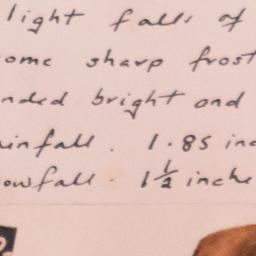 light falls of
ome sharp frost
nded bright and
infall. 1.85 inc
owfall. 1½ inche